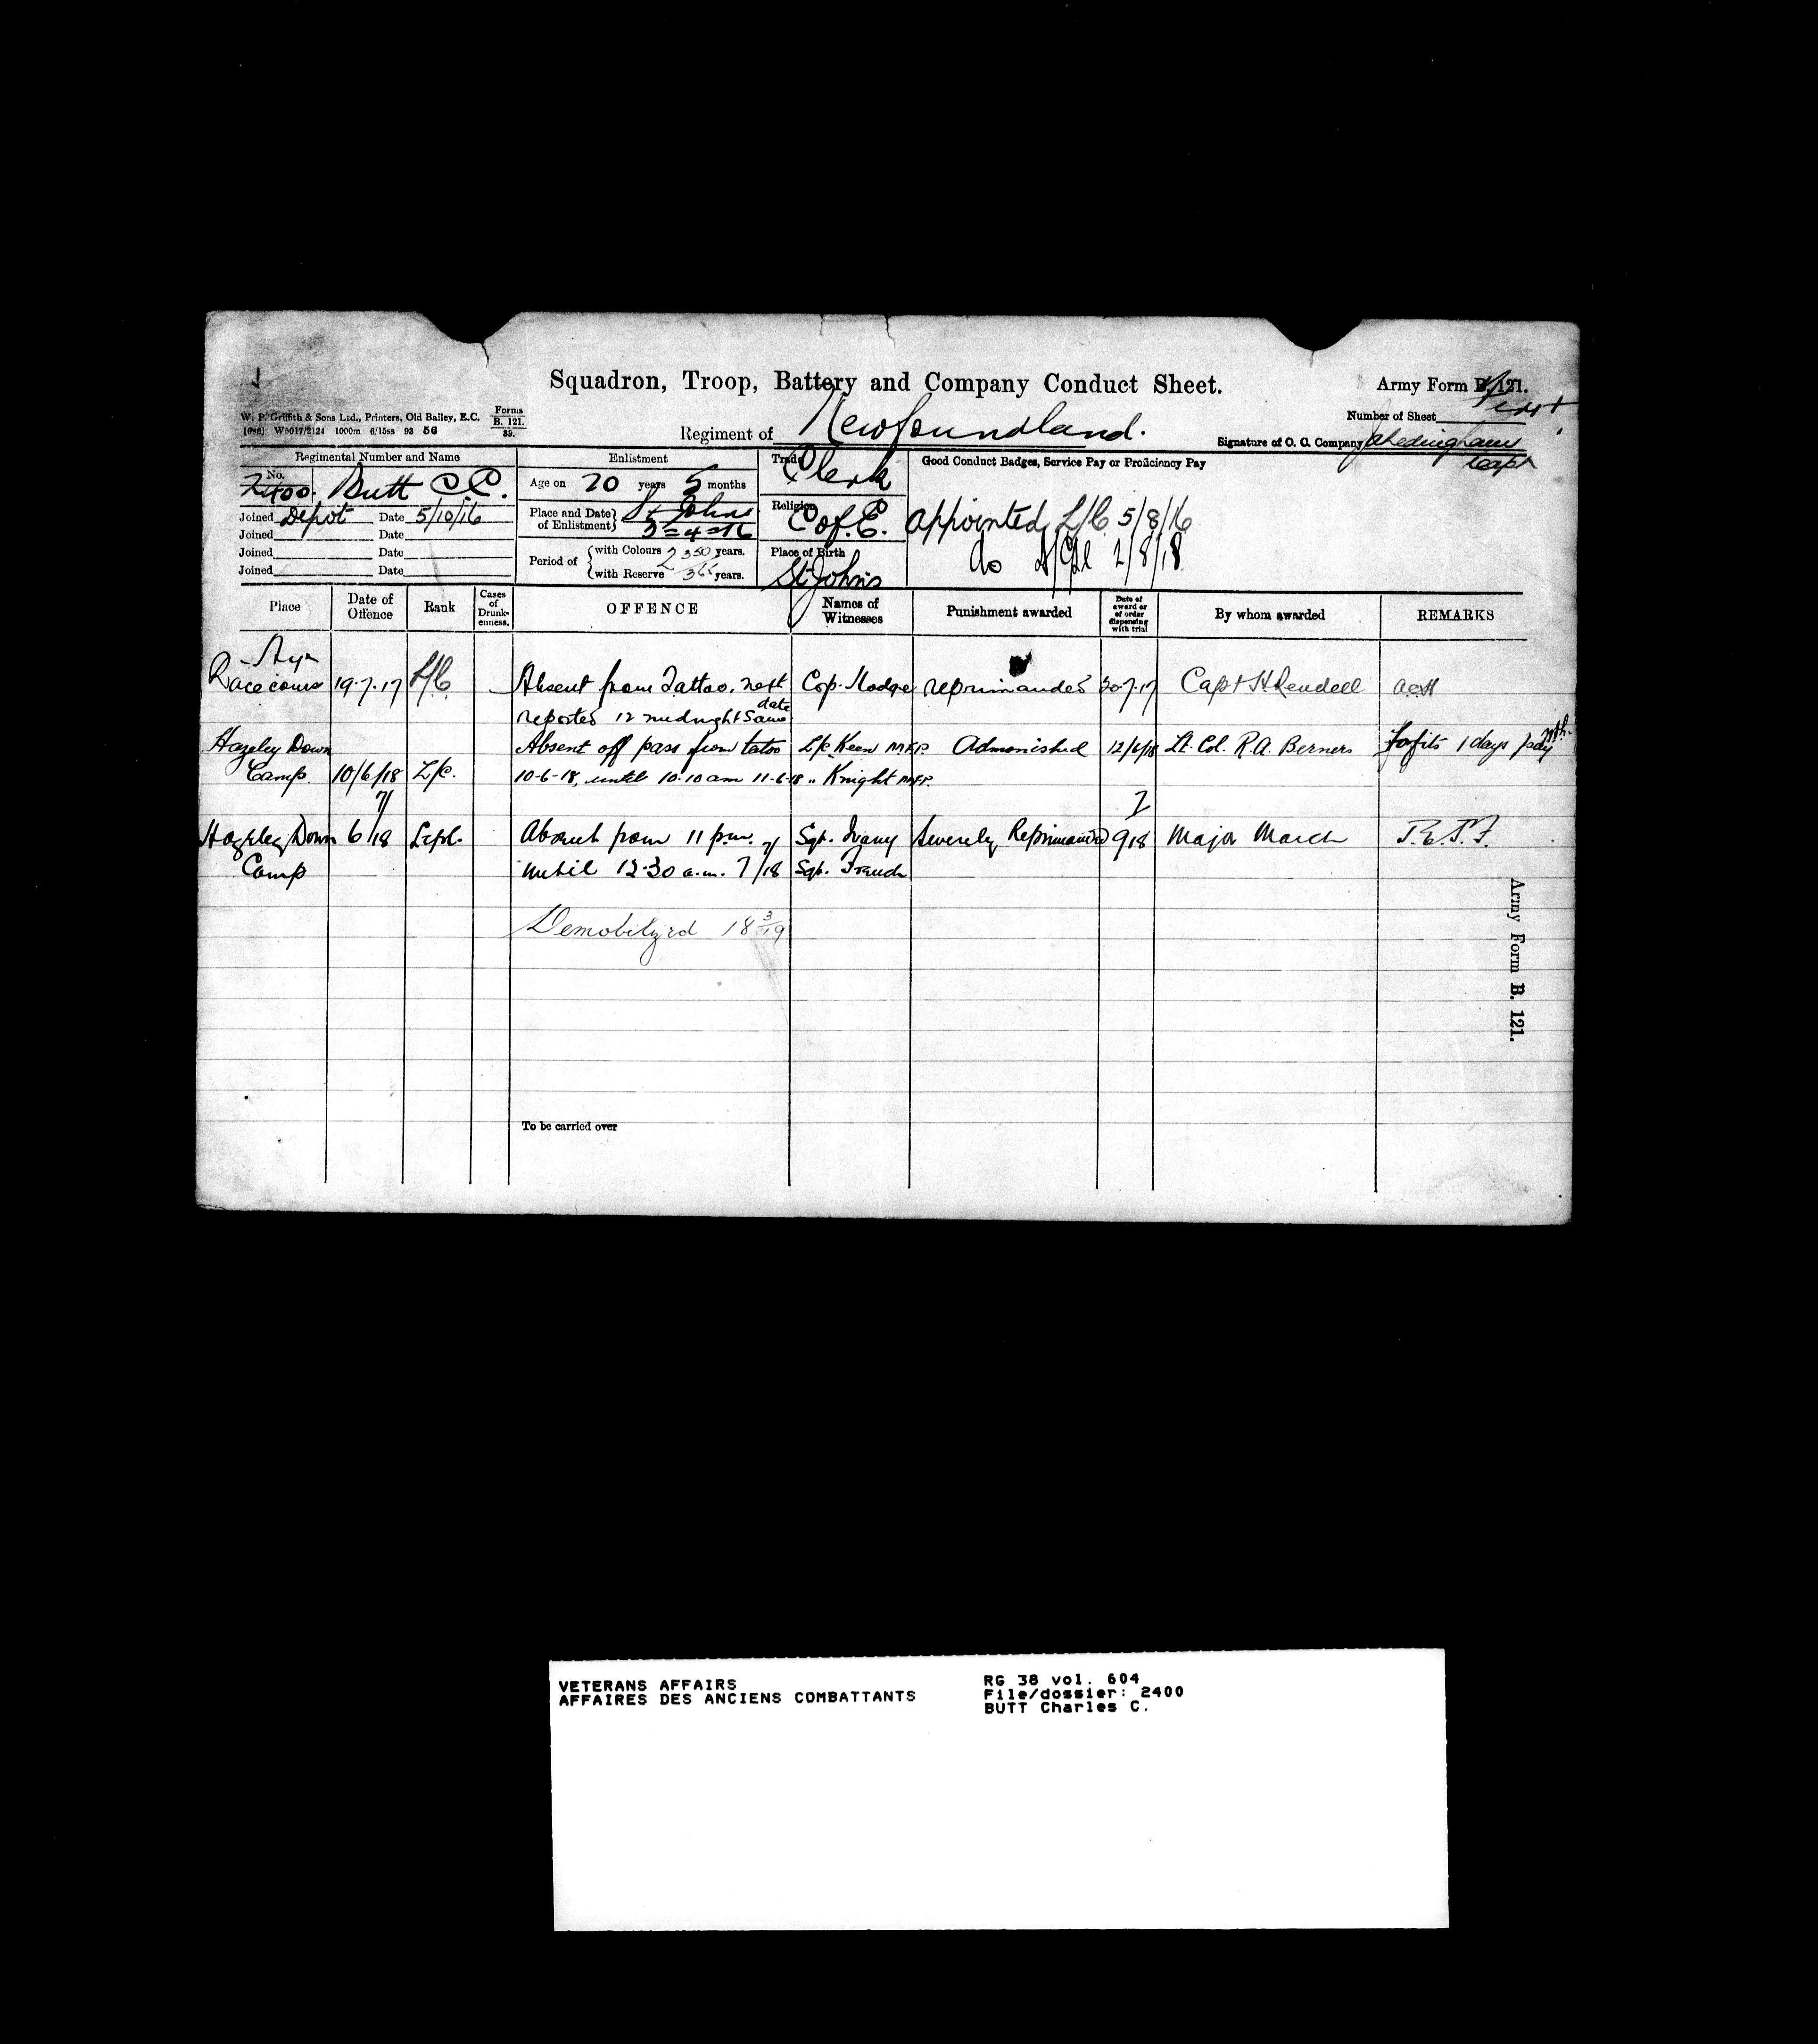 Squadron, Troop, Battery and Company Conduct Sheet.
Army Form B. 121.
W. P. Griffith & Sons Ltd., Printers, Old Bailey, E.C.
Forms B. 121. 39.
(686) W5017/2124 1000m 6/15ss 93 56
Number of Sheet First
Regiment of Newfoundland.
Signature of O. C. Company Capt
Regimental Number and Name
No. 2400. Butt C C.
Joined Depot Date 5/10/16
Joined Date
Joined Date
Joined Date
Enlistment
Age on 20 years 5 months
Place and Date of Enlistment } St Johns 3-4-16
Period of { with Colours 2 350 years.
with Reserve 365 years.
Trade Clerk
Religion C of. E.
Place of Birth St Johns
Good Conduct Badges, Service Pay or Proficiency Pay
Appointed L/C 5/8/16
do A/Cpl 2/8/18
Place Date of Offence Rank Cases of Drunkenness. OFFENCE Names of Witnesses Punishment awarded Date of award or of order dispensing with trial By whom awarded REMARKS
Ayr
Racecourse 19.7.17 L/C Absent from Tattoo, Corp. Hodge reprimanded 20.7.17 Capt H Rendell
reported 12 midnight same date
Hazeley Down Absent off pass from tatoo L/c Keen M.F.P. Admonished 12/6/18 Lt. Col. R.A. Berners forfits 1 days pay
Camp. 10/6/18 L/c. 10-6-18, until 10.10 am 11-6-18 " Knight M.F.P.
Hazeley Down 6 7/18 L cpl. Absent from 11 p.m. Sgt. Ivany Severely Reprimanded 9 7 18 Major March
Camp until 12.30 a.m. 7 7/18 Sgt. French
Demobilized 18 3/19
Army Form B. 121.
To be carried over
VETERANS AFFAIRS
AFFAIRES DES ANCIENS COMBATTANTS
RG 38 vol. 604
File/dossier: 2400
BUTT Charles C.